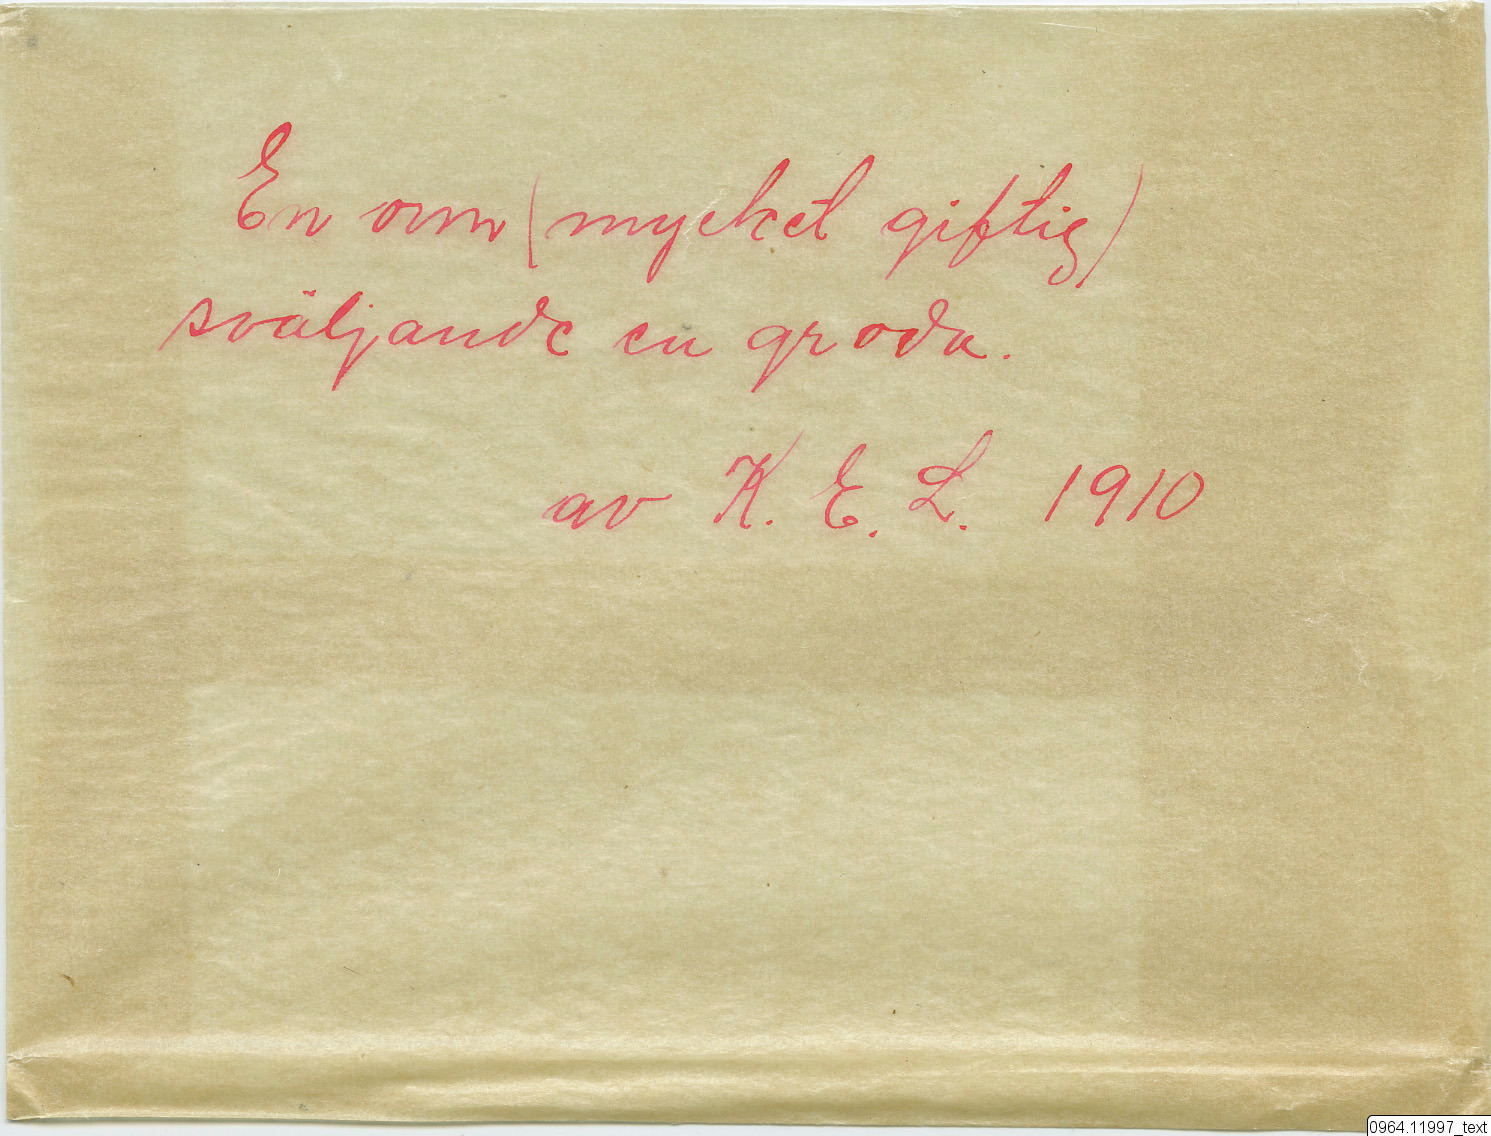 En orm (mycket giftig)
sväljande en groda.
av K. E. L. 1910
0964.11997_text